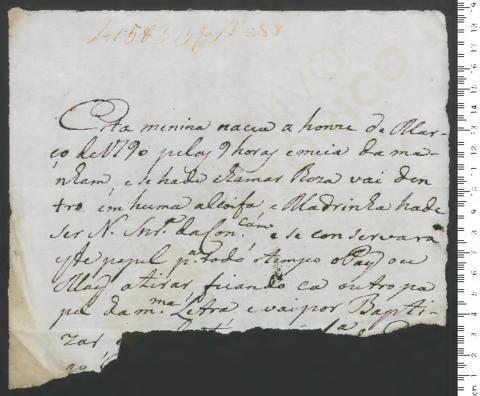 Esta menina naceu a honze de Mar-
ço de 1790 pelas 9 horas e meia da ma-
nham, e se hade chamar Roza vai den
tro em huma alcofa e Madrinha hade
ser N. Snr.ª da Con.cam e se conservara
este papel p.ª todo o tempo o Pay ou
May a tirar, ficando ca outro pa
pel da m.ma Letra e vai por Bapti-
zar